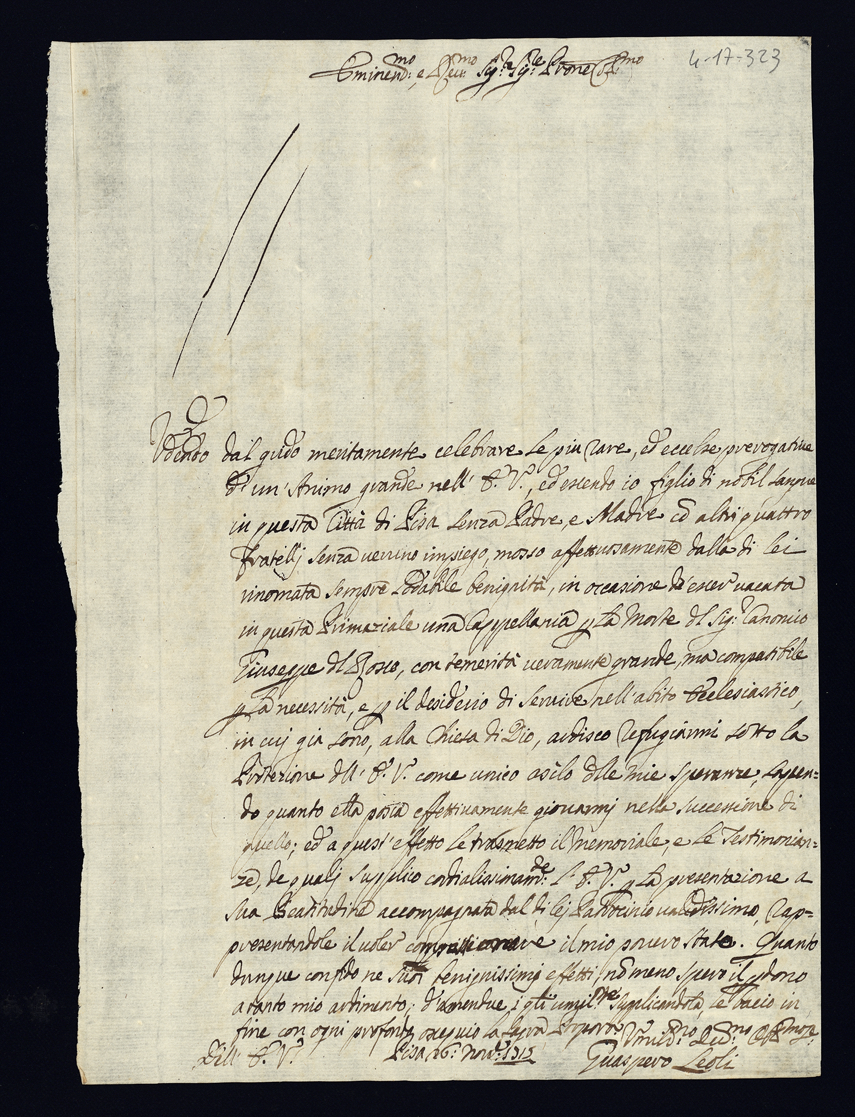 Eminen:mo e Rev:mo Sig:r Sig:re P̃rone Col:mo
4-17-323
Udendo dal grido meritamente celebrare le più rare, ed eccelse prerogative
d'un' Animo grande nell' E. V., ed essendo io figlio di nobil sangue
in questa Città di Pisa senza Padre, e Madre cõ altri quattro
fratellj senza veruno impiego, mosso affettuosamente dalla di lei
rinomata sempre lodabile benignità, in occasione d'esser vacata
in questa Primaziale una Cappellania p la Morte del Sig:r Canonico
Giuseppe del Rosso, con temerità veramente grande, ma compatibile
p la necessità, e p il desiderio di servire nell'abito Ecclesiastico,
in cuj già sono, alla Chiesa di Dio, ardisco refugiarmi sotto la
Protezione dell' E. V. come unico asilo delle mie speranze, sapen=
do quanto ella possa effettivamente giovarmj nella successione di
quello; ed a quest'effetto le trasmetto il memoriale, e le Testimonian=
ze, de qualj supplico cordialissimam:te l' E. V. p la presentazione a
Sua Beatitudine accompagnata dal di lej Patrocinio validissimo, rap=
presentandole il voler compassionare il mio povero stato. Quanto
dunque confido ne suoi benignissimj effetti, nõ meno spero il pdono
a tanto mio ardimento; d'amendue i qli umilm:te supplicandola, le bacio in
fine con ogni profondo ossequio la Sagra Porpora
Dell' E. V. Pisa 26: Nov:e 1715 Umil:mo Dev:mo Obl:mo
Guaspero Leoli